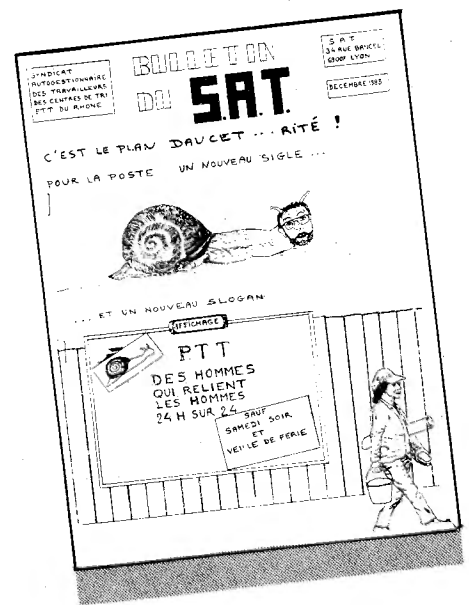 SYNDICAT
AUTOGESTIONNAIRE
DES TRAVAILLEURS
DES CENTRES DE TRI
PTT DU RHONE
BULLETIN
DU S.A.T.
S A T
69007 LYON
DECEMBRE 1983
C'EST LE PLAN DAUCET... RITÉ !
POUR LA POSTE UN NOUVEAU SIGLE ...
... ET UN NOUVEAU SLOGAN
AFFICHAGE
PTT
DES HOMMES
QUI RELIENT
LES HOMMES
24 H SUR 24
SAUF
SAMEDI SOIR
ET
VEILLE DE FERIE